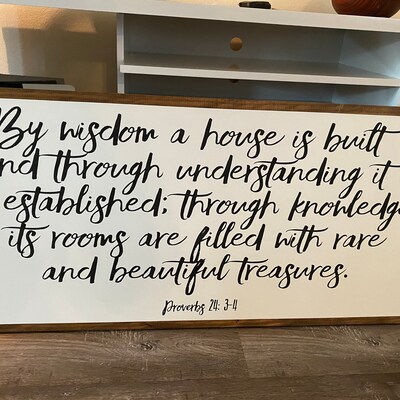 By wisdom a house is built
nd through understanding it
established; through knowledg
its rooms are filled with rare
and beautiful treasures.
Proverbs 24: 3-4